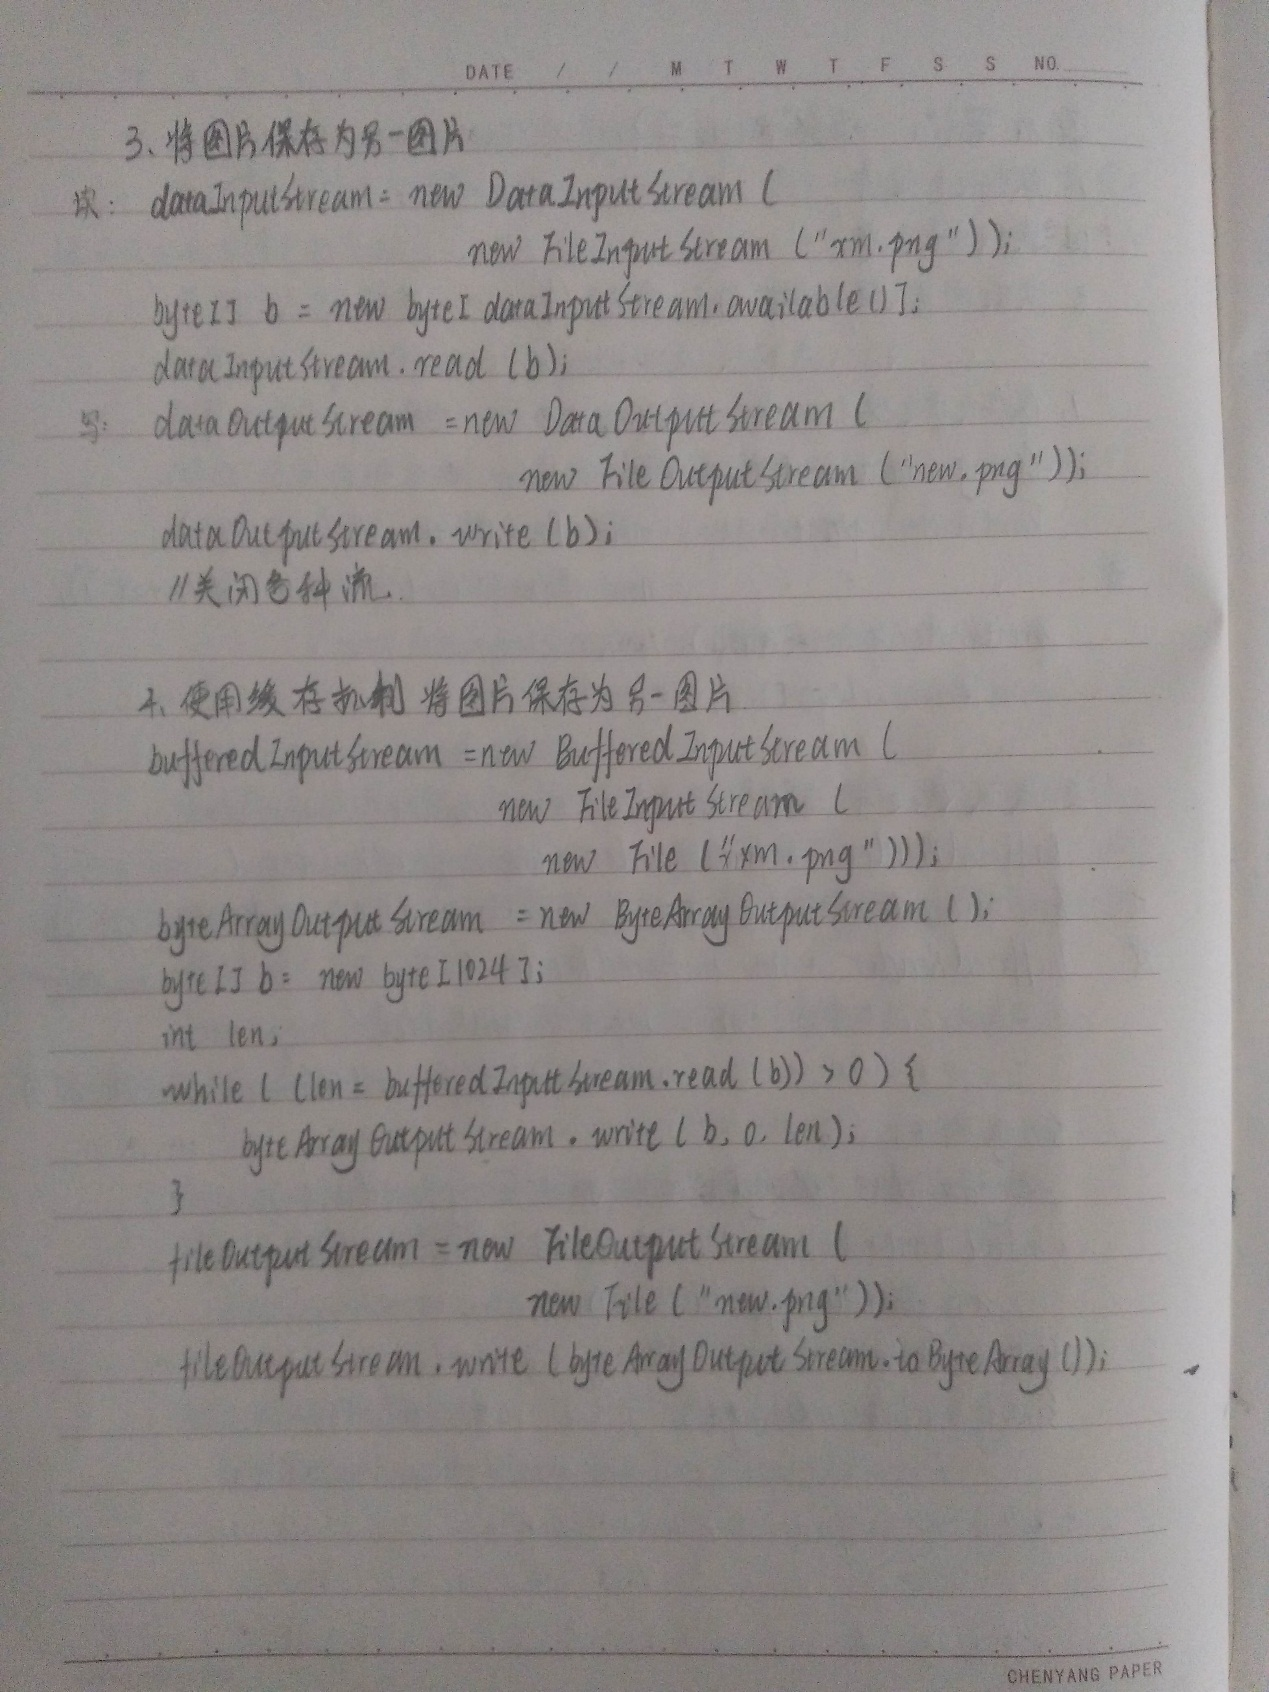 DATE / / M T W T F S S NO.
3、将图片保存为另一图片
读: dataInputStream = new DataInputStream (
new FileInputStream ("xm.png"));
byte[] b = new byte[dataInputStream.available()];
dataInputStream.read (b);
写: dataOutputStream = new DataOutputStream (
new FileOutputStream ("new.png"));
dataOutputStream.write (b);
//关闭各种流.
4、使用缓存机制 将图片保存为另一图片
bufferedInputStream = new BufferedInputStream (
new FileInputStream (
new File ("xm.png")));
byteArrayOutputStream = new ByteArrayOutputStream ();
byte[] b = new byte[1024];
int len;
while ( (len = bufferedInputStream.read (b)) > 0 ) {
byteArrayOutputStream.write ( b, 0, len);
}
fileOutputStream = new FileOutputStream (
new File ( "new.png"));
fileOutputStream.write (byteArrayOutputStream.toByteArray ());
CHENYANG PAPER